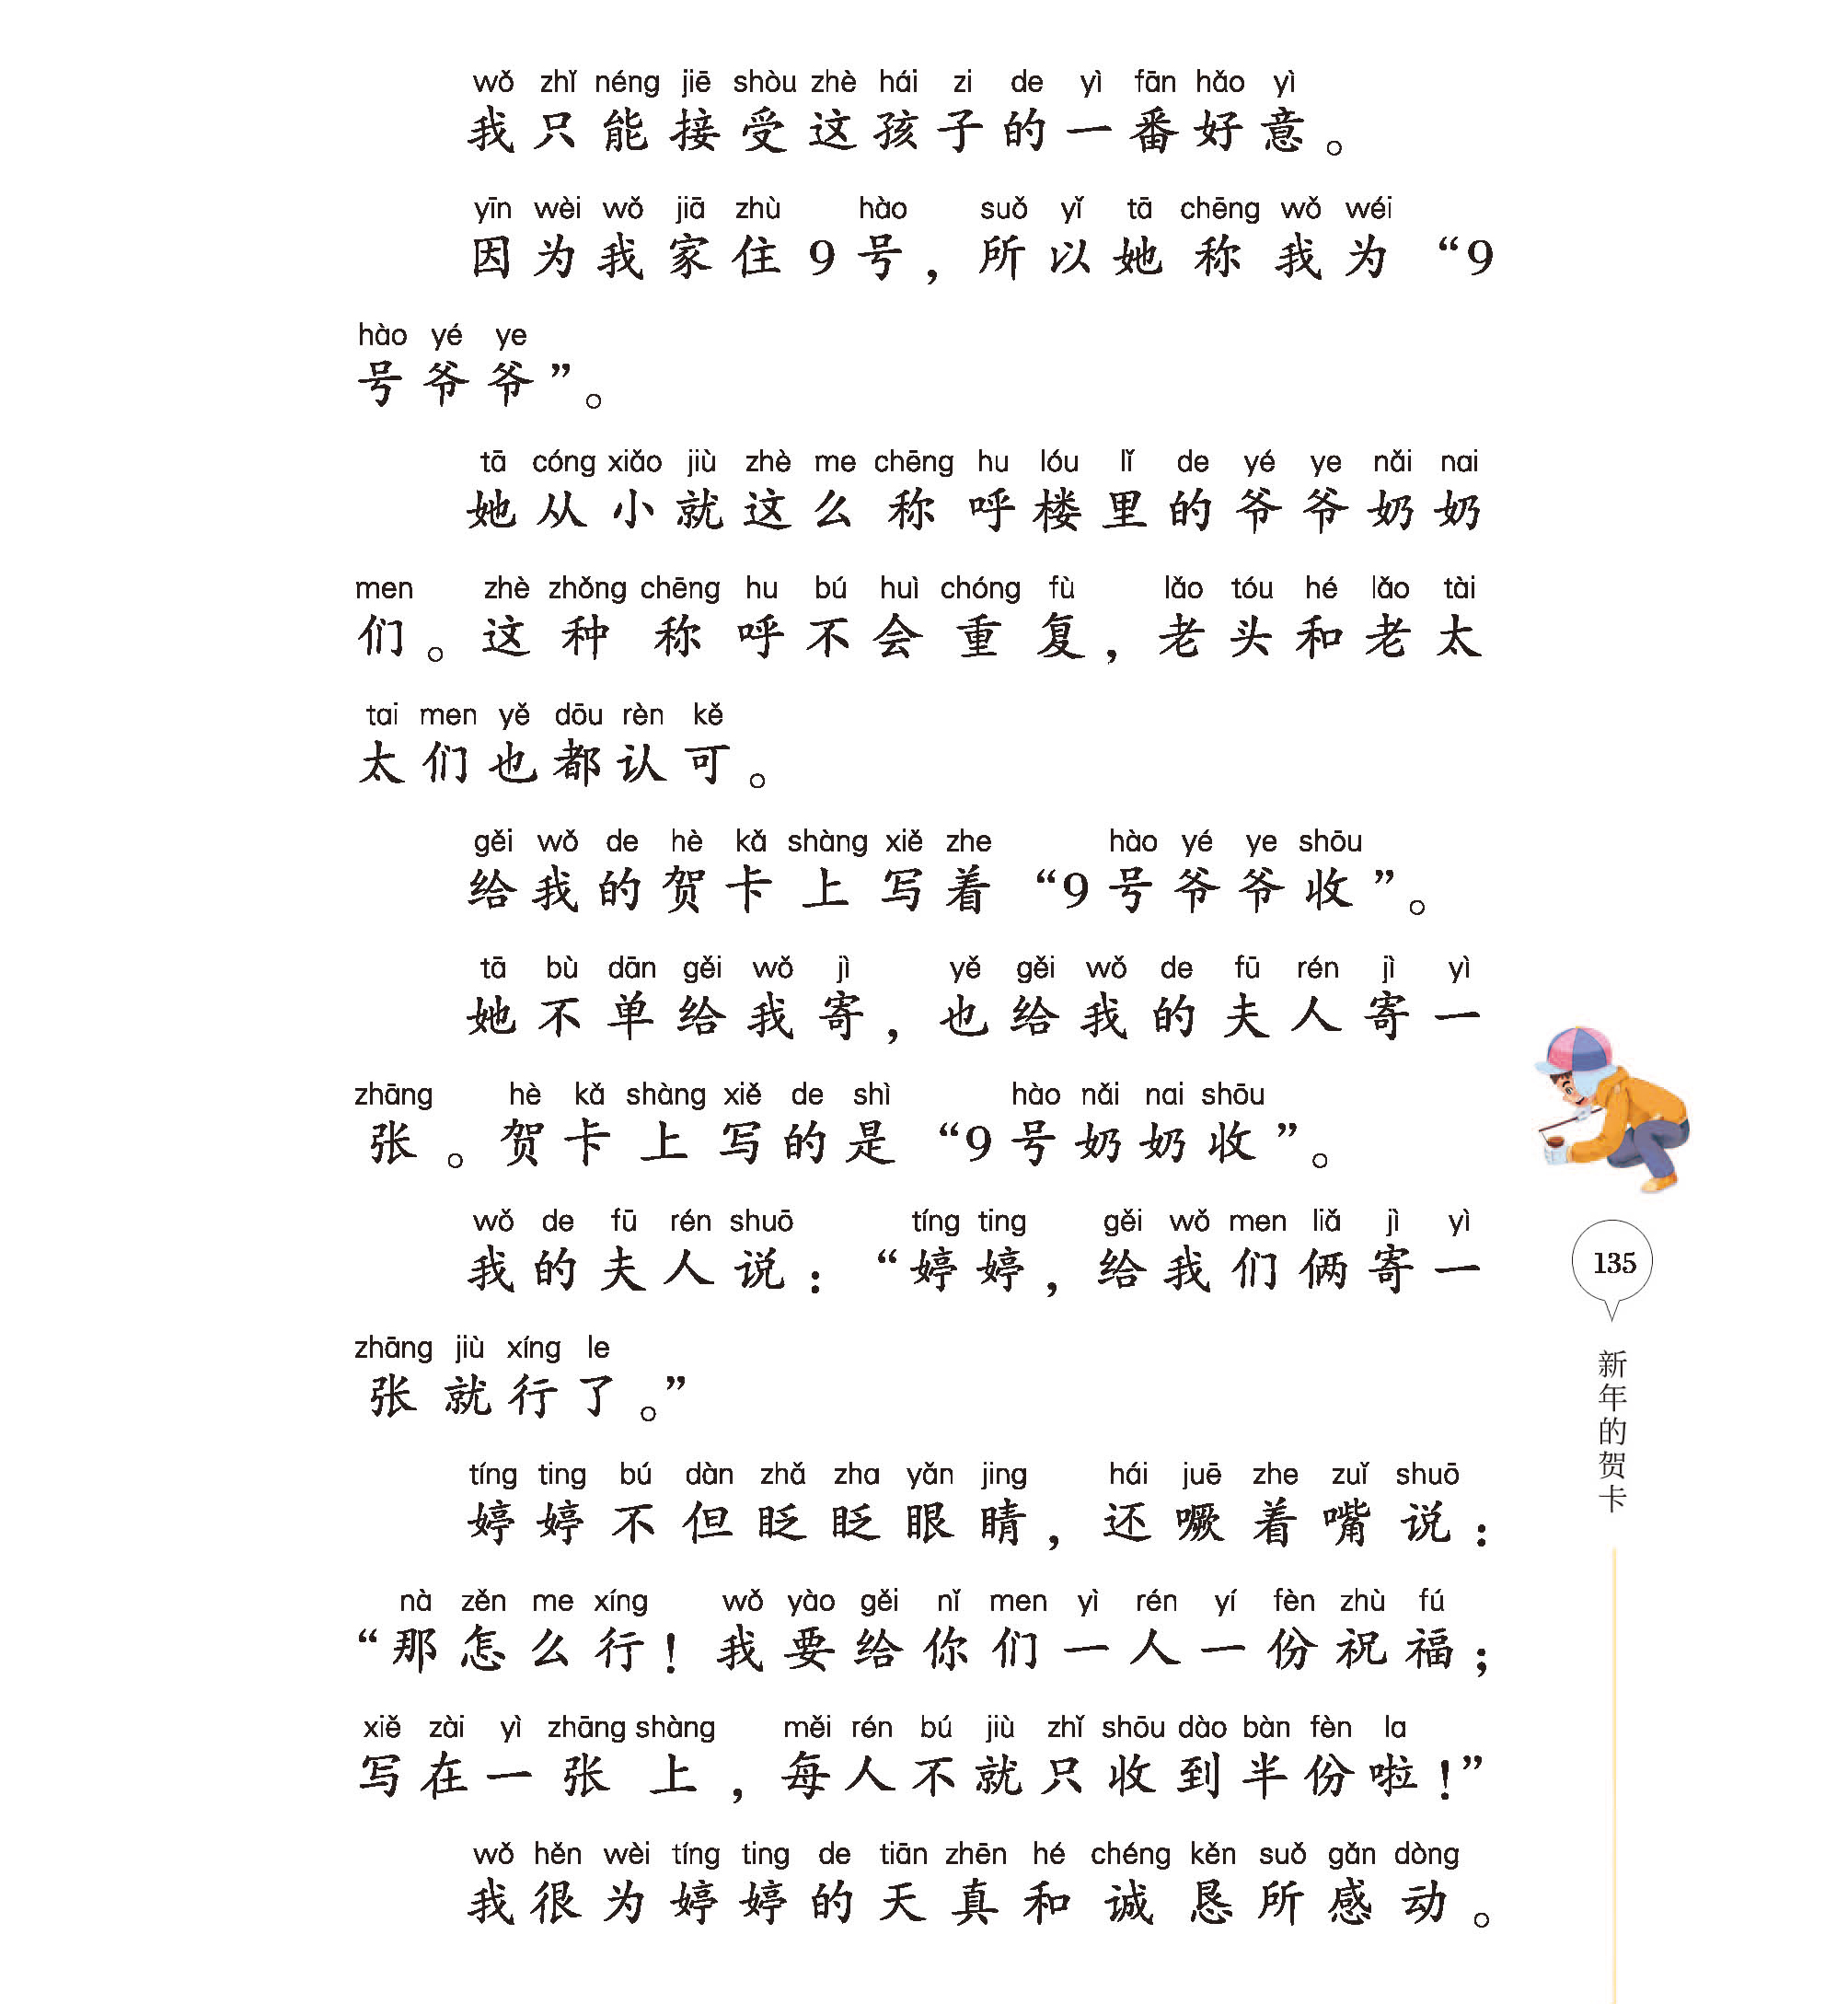 wǒ zhǐ néng jiē shòu zhè hái zi de yì fān hǎo yì
我只能接受这孩子的一番好意。
yīn wèi wǒ jiā zhù hào suǒ yǐ tā chēng wǒ wéi
因为我家住9号，所以她称我为“9
hào yé ye
号爷爷”。
tā cóng xiǎo jiù zhè me chēng hu lóu lǐ de yé ye nǎi nai
她从小就这么称呼楼里的爷爷奶奶
men zhè zhǒng chēng hu bú huì chóng fù lǎo tóu hé lǎo tài
们。这种称呼不会重复，老头和老太
tai men yě dōu rèn kě
太们也都认可。
gěi wǒ de hè kǎ shàng xiě zhe hào yé ye shōu
给我的贺卡上写着“9号爷爷收”。
tā bù dān gěi wǒ jì yě gěi wǒ de fū rén jì yì
她不单给我寄，也给我的夫人寄一
zhāng hè kǎ shàng xiě de shì hào nǎi nai shōu
张。贺卡上写的是“9号奶奶收”。
wǒ de fū rén shuō tíng ting gěi wǒ men liǎ jì yì
我的夫人说：“婷婷，给我们俩寄一
zhāng jiù xíng le
张就行了。”
tíng ting bú dàn zhǎ zha yǎn jing hái juē zhe zuǐ shuō
婷婷不但眨眨眼睛，还噘着嘴说：
nà zěn me xíng wǒ yào gěi nǐ men yì rén yí fèn zhù fú
“那怎么行！我要给你们一人一份祝福；
xiě zài yì zhāng shàng měi rén bú jiù zhǐ shōu dào bàn fèn la
写在一张上，每人不就只收到半份啦！”
wǒ hěn wèi tíng ting de tiān zhēn hé chéng kěn suǒ gǎn dòng
我很为婷婷的天真和诚恳所感动。
135
新年的贺卡